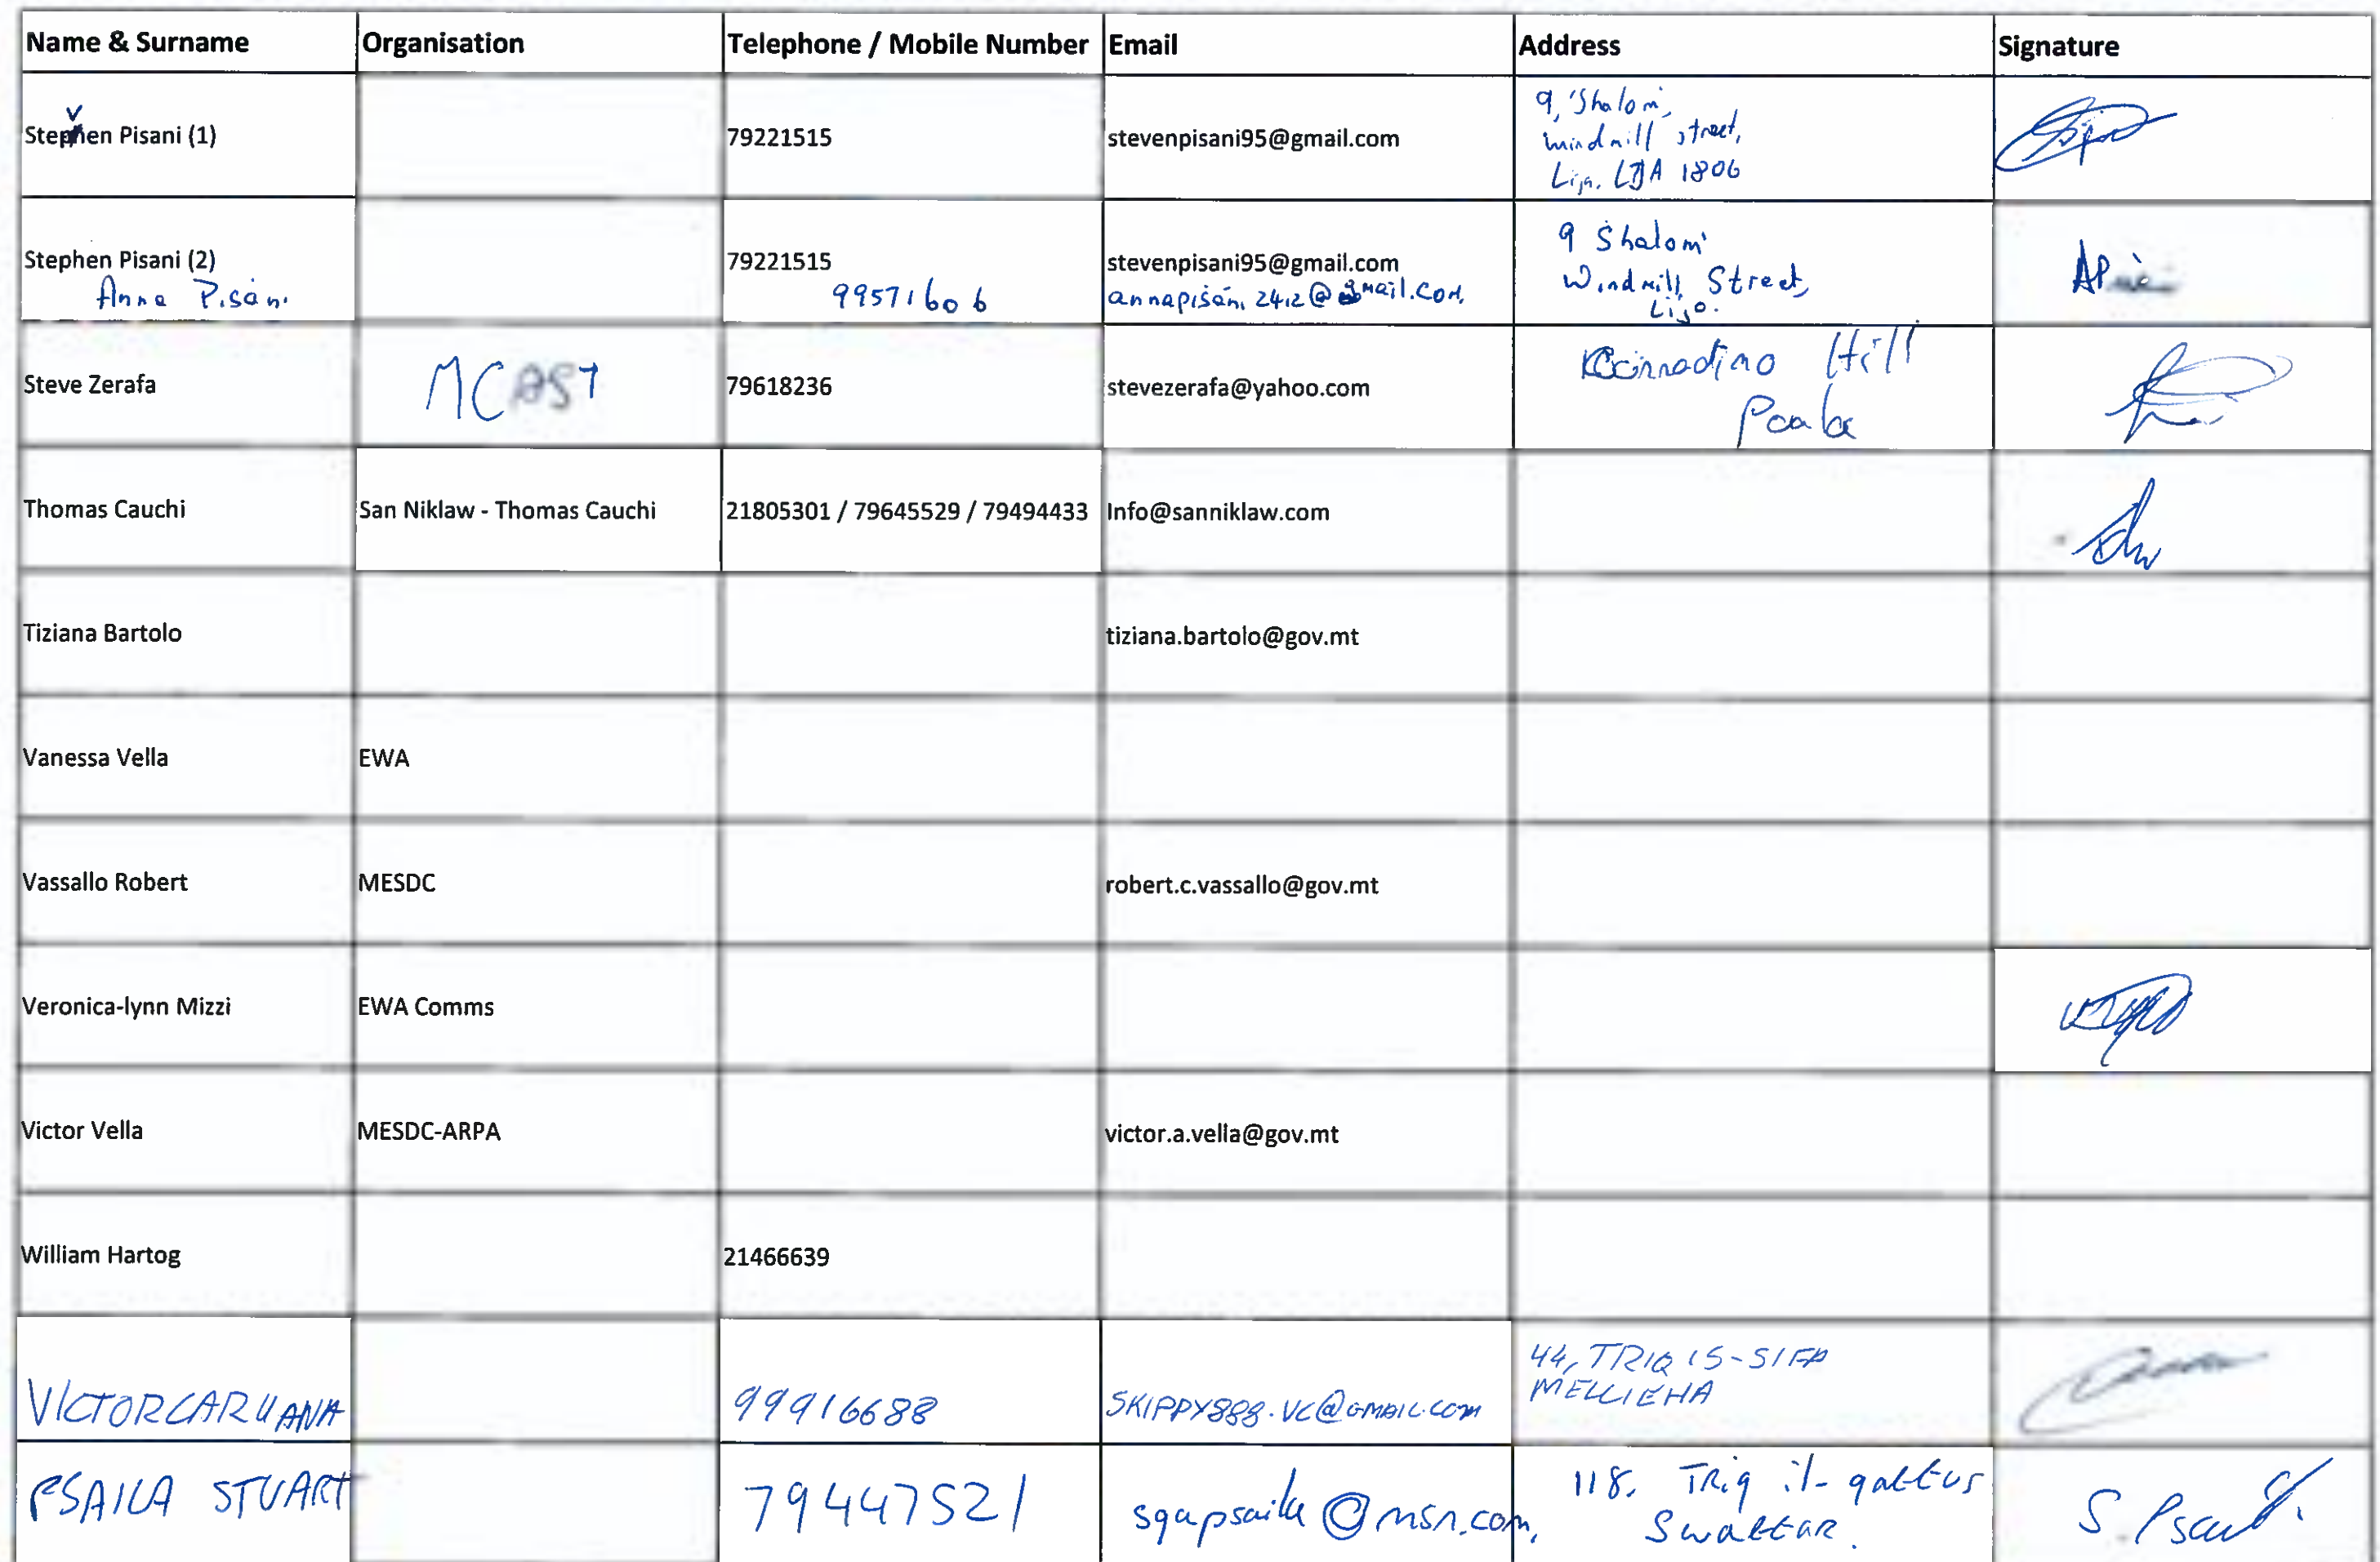 Name & Surname Organisation Telephone / Mobile Number Email Address Signature
v
Stephen Pisani (1) 79221515 stevenpisani95@gmail.com 9, 'Shalom',
windmill street,
Lija. LJA 1806
Stephen Pisani (2) 79221515 stevenpisani95@gmail.com 9 Shalom'
Anna Pisani 99571606 annapisani2412@gmail.com Windmill Street,
Lija.
Steve Zerafa MCAST 79618236 stevezerafa@yahoo.com Corradino Hill
Paola
Thomas Cauchi San Niklaw - Thomas Cauchi 21805301 / 79645529 / 79494433 Info@sanniklaw.com
Tiziana Bartolo tiziana.bartolo@gov.mt
Vanessa Vella EWA
Vassallo Robert MESDC robert.c.vassallo@gov.mt
Veronica-lynn Mizzi EWA Comms
Victor Vella MESDC-ARPA victor.a.vella@gov.mt
William Hartog 21466639
VICTOR CARUANA 99916688 SKIPPY888.VC@GMAIL.COM 44, TRIQ IS-SIFA
MELLIEHA
PSAILA STUART 79447521 sgapsaila@msn.com, 118, TRiq il-qattus
Swattar.